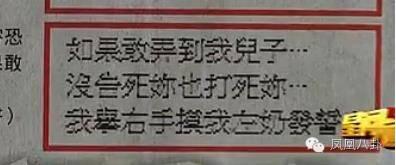 恐
果敢
如果敢弄到我兒子…
沒告死妳也打死妳…
我舉右手摸我左奶發誓
)
凤凰八卦